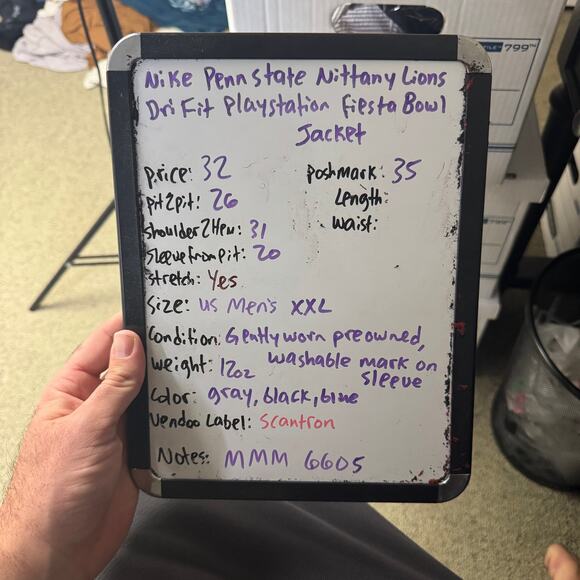 Nike Penn State Nittany Lions
Dri Fit Playstation Fiesta Bowl
Jacket
price: 32
poshmark: 35
pit2pit: 26
Length:
shoulder2Hem: 31
Waist:
Sleeve from pit: 20
stretch: Yes
Size: US Men's XXL
Condition: Gently worn preowned,
washable mark on
sleeve
Weight: 12oz
Color: gray, black, blue
Vendoo Label: Scantron
Notes: MMM 6605
799